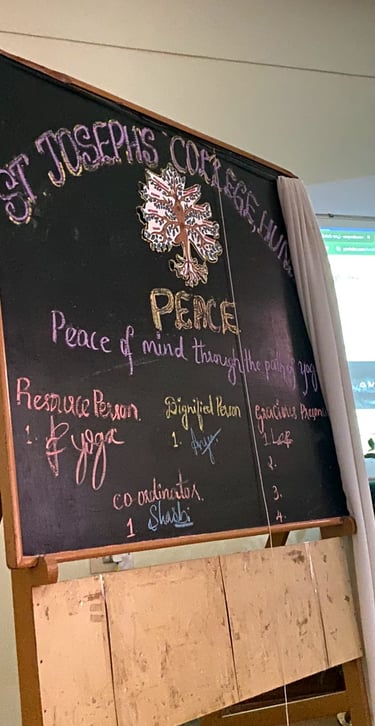 ST JOSEPHS COLLEGE,
PEACE
Peace of mind through the path of yoga
Resource Person Dignified Person Gracious
1. yoga 1. 1.
2.
3.
co-ordinator. 4.
1 Shashi